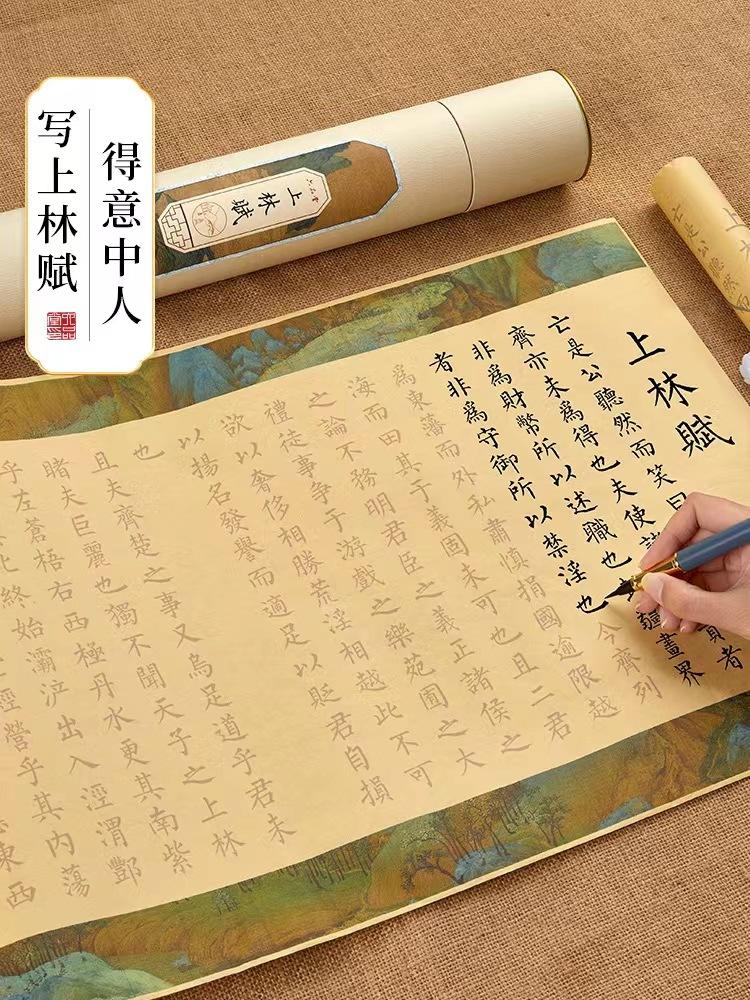 得意中人
写上林赋
上林賦
上林賦
亡是公聽然而笑曰
齊亦未爲得也夫使諸貢者
非爲財幣所以述職也疆畫界
者非爲守御所以禁淫也今齊列
爲東藩而外私肅慎捐國逾限越
海而田其于義固未可也且二君
之論不務明君臣之義正諸侯之
禮徒事爭于游戲之樂苑囿之大
欲以奢侈相勝荒淫相越此不可
以揚名發譽而適足以貶君自損
也
且夫齊楚之事又烏足道乎君未
睹夫巨麗也獨不聞天子之上林
乎左蒼梧右西極丹水更其南紫
北終始灞浐出入涇渭酆
經營乎其内蕩
東西
亡是公聽然